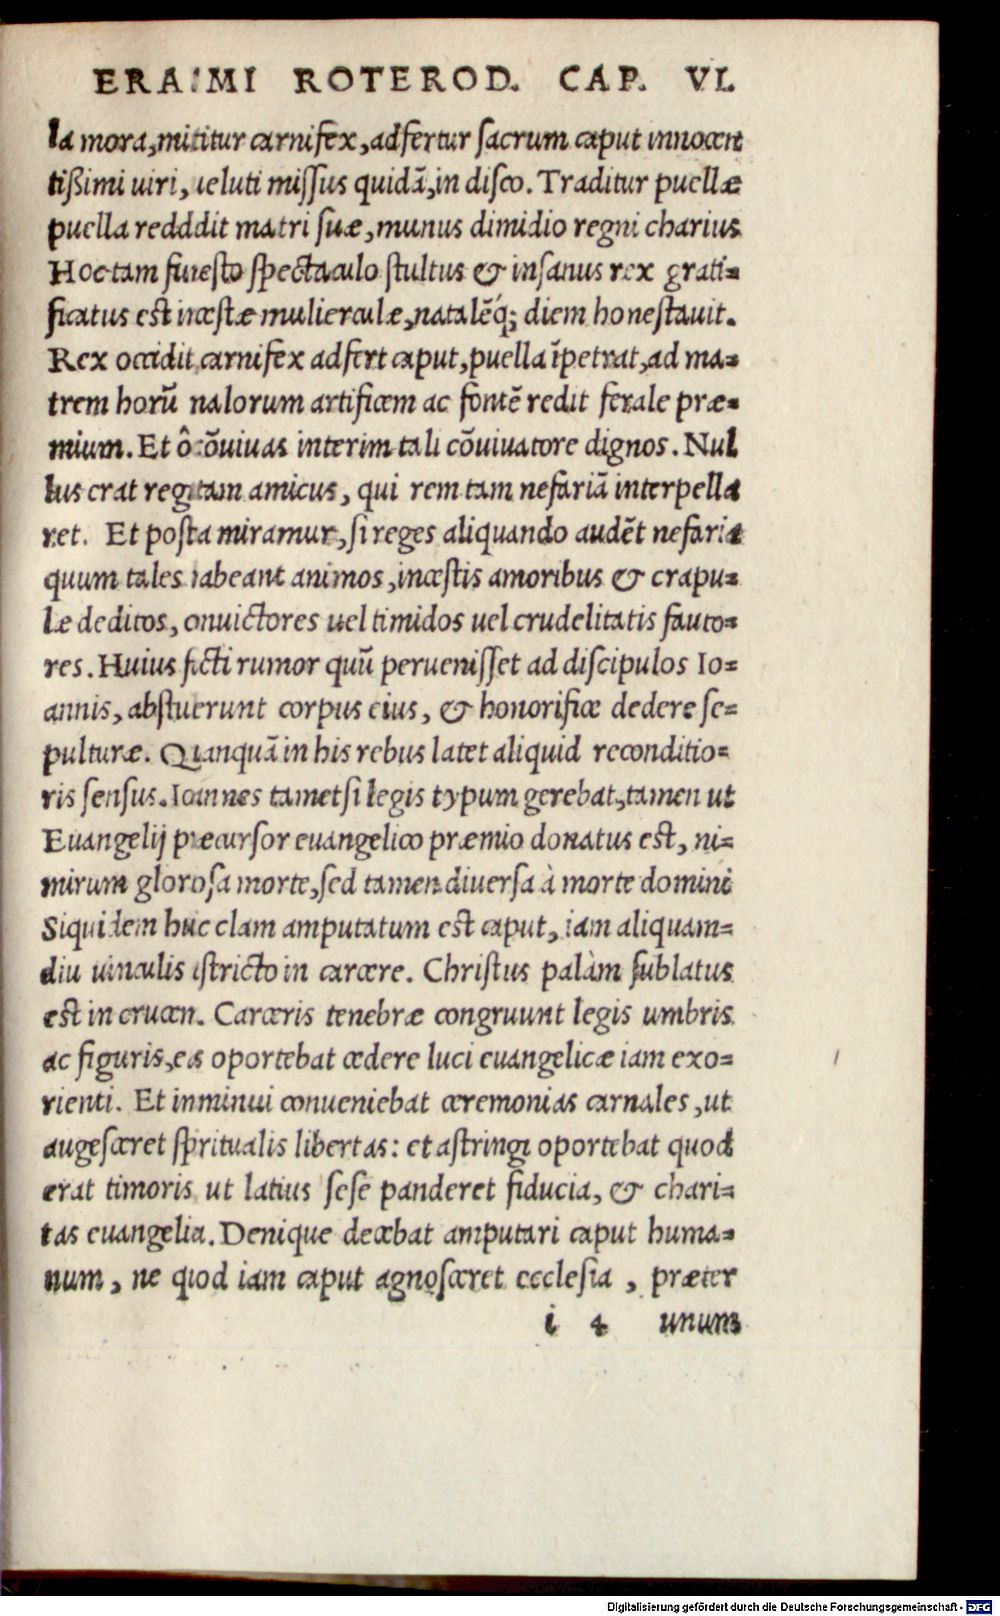 ERASMI ROTEROD. CAP. VI.
la mora, mittitur carnifex, adfertur sacrum caput innocen
tißimi uiri, ueluti missus quidā, in disco. Traditur puellæ
puella redddit matri suæ, munus dimidio regni charius.
Hoc tam funesto spectaculo stultus & insanus rex grati=
ficatus est incestæ mulierculæ, natalēq́; diem honestauit.
Rex occidit, carnifex adfert caput, puella īpetrat, ad ma=
trem horū malorum artificem ac fontē redit ferale præ=
mium. Et ô cōuiuas interim tali cōuiuatore dignos. Nul
lus erat regi tam amicus, qui rem tam nefariā interpella
ret. Et posta miramur, si reges aliquando audēt nefaria
quum tales habeant animos, incestis amoribus & crapu=
læ deditos, conuictores uel timidos uel crudelitatis fauto=
res. Huius facti rumor quū peruenisset ad discipulos Io=
annis, abstulerunt corpus eius, & honorifice dedere se=
pulturæ. Quanquā in his rebus latet aliquid reconditio=
ris sensus. Ioannes tametsi legis typum gerebat, tamen ut
Euangelij præcursor euangelico præmio donatus est, ni=
mirum gloriosa morte, sed tamen diuersa à morte domini
Siquidem huic clam amputatum est caput, iam aliquam=
diu uinculis astricto in carcere. Christus palàm sublatus
est in crucem. Carceris tenebræ congruunt legis umbris
ac figuris, eas oportebat cedere luci euangelicæ iam exo=
rienti. Et inminui conueniebat ceremonias carnales, ut
augesceret spiritualis libertas: et astringi oportebat quod
erat timoris, ut latius sese panderet fiducia, & chari=
tas euangelica. Denique decebat amputari caput huma=
num, ne quod iam caput agnosceret ecclesia, præter
i 4 unum
Digitalisierung gefördert durch die Deutsche Forschungsgemeinschaft - DFG